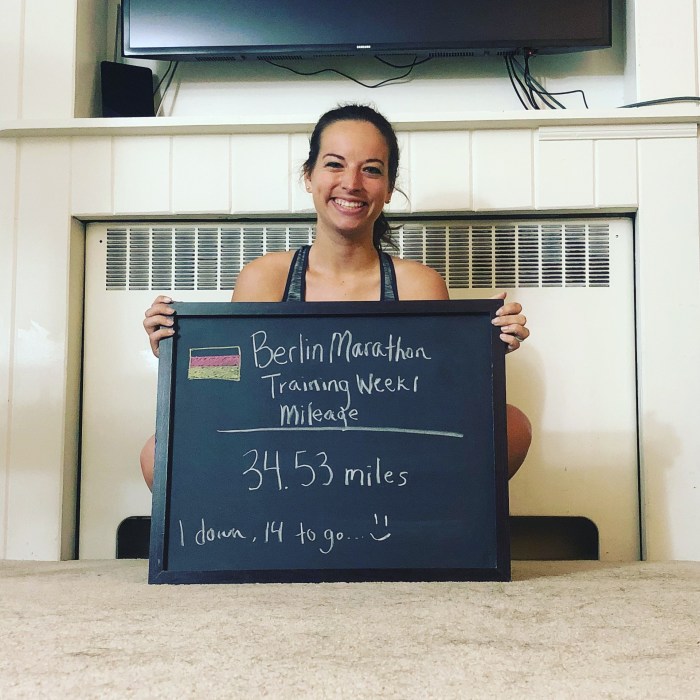 SAMSUNG
Berlin Marathon
Training Week 1
Mileage
34.53 miles
1 down, 14 to go... :)